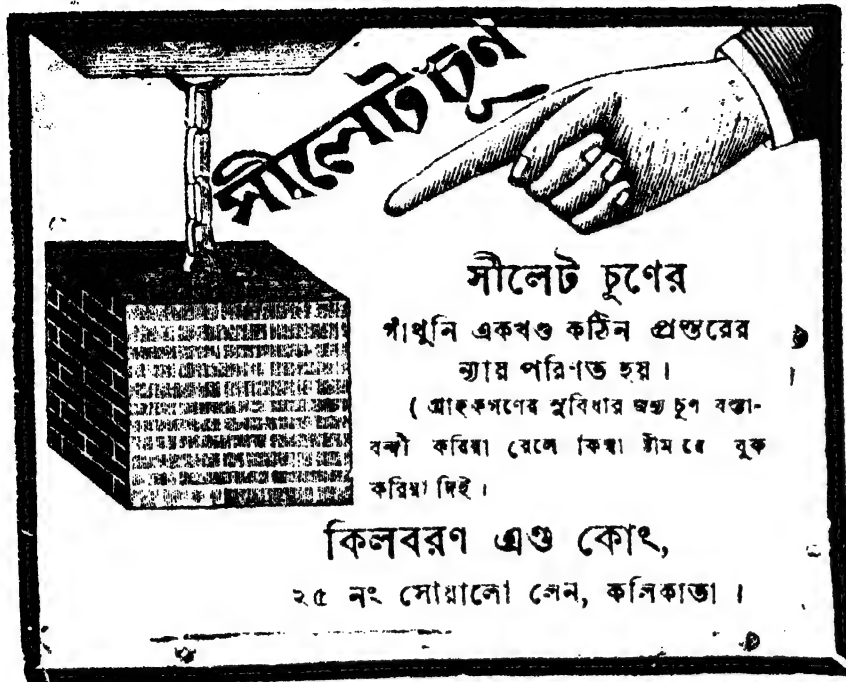 সীলেট চূণ
সীলেট চূণের
গাঁথুনি একখণ্ড কঠিন প্রস্তরের
ন্যায় পরিণত হয়।
( গ্রাহকগণের সুবিধার জন্য চূণ বস্তা-
বন্দী করিয়া রেলে কিম্বা ষ্টীমারে বুক
করিয়া দিই।
কিলবরণ এণ্ড কোং,
২৫ নং সোয়ালো লেন, কলিকাতা।